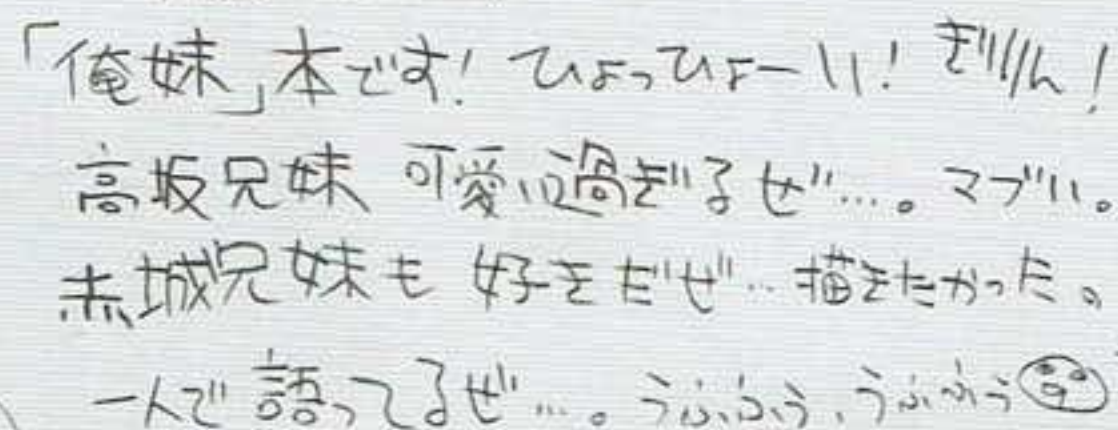 「俺妹」本です! ひょっひょーい! きりりん!
高坂兄妹 可愛い過ぎるぜ…。マブい。
赤城兄妹も 好きだぜ… 描きたかった。
一人で語ってるぜ…。うふふう、うふふう